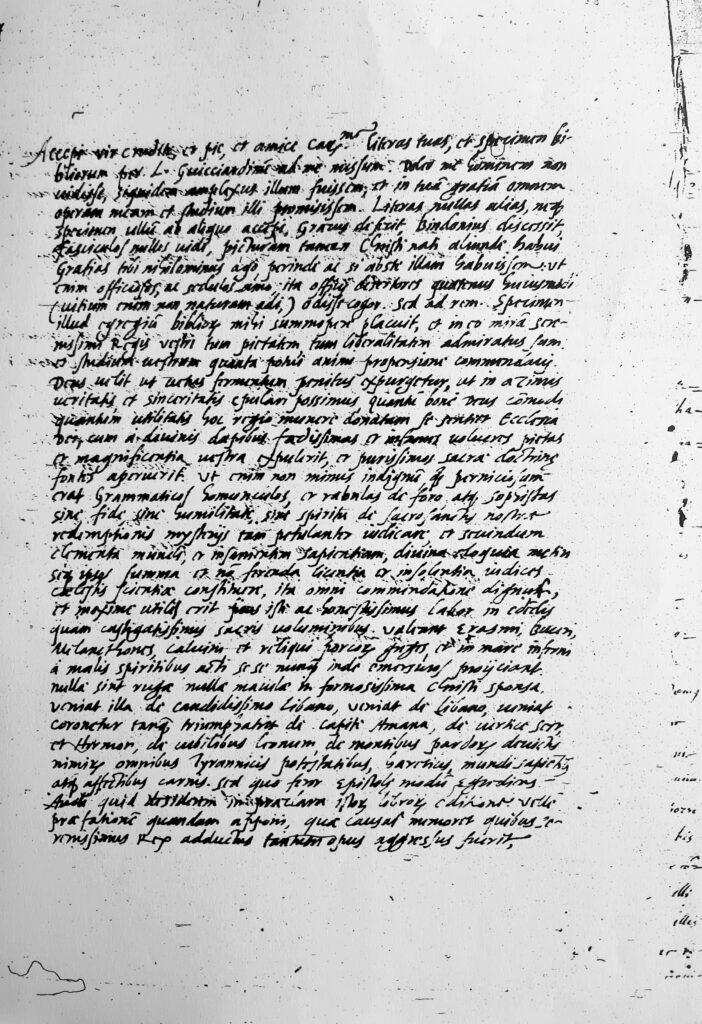 Accepi vir erudite, et pie, et amice car.me literas tuas, et specimen bi-
bliorum per L. Guicciardinũ ad me missum. Doleo me hominem non
vidisse, siquidem amplexus illum fuissem, et in tuã gratiã omnem
operam meam et studium illi promisissem. Literas nullas alias, neq
specimen ullũ ab aliquo accepi, Bindonius discessit,
fasciculos nullos vidi, picturam tamen Christi nati aliunde habui
Gratias tibi nihilominus ago perinde ac si abste illam habuissem. ut
enim officiosos, ac sedulos amo, ita officij desertores quatenus huiusmodi
(vitium enim non naturam odi,) odisse cogor. Sed ad rem. Specimen
illud egregiũ biblior mihi summopere placuit, et in eo mirã sere-
nissimi Regis vestri tum pietatem tum liberalitatem admiratus sum
et studium vestrum quanta potui animi propensione commendavi.
Deus velit ut vetus fermentum penitus expurgetur, ut in azimis
veritatis et sinceritatis epulari possimus quanti bone Deus cõmodi
quantum utilitatis hoc regio munere donatam se sentiet Ecclesia
Dei, cum a divinis dapibus fœdissimas et volucres pietas
et magnificentia vestra expulerit, et purissimos sacræ doctrinę
fontes aperuerit. Ut enim non minus indignũ perniciosum
erat Grammaticos homunculos, et rabulas de foro, atq sophistas
sine fide, sine humilitate, sine spiritu de sacrosanctis nostræ
redemptionis mysterijs tam petulanter iudicare, et secundum
elementa mundi, et insanientem sapientiam, divina eloquia metiri
seq ipsos summa et nõ ferenda licentia et insolentia iudices
cœlestis scientiæ constituere, ita omni commendatione dignus,
et maxime utilis erit iste ac honestissimus labor in edendis
quam castigatissimis sacris voluminibus. valeant Erasmi, Buceri,
Melancthones, Calvini et reliqui porcor greges, et in mare inferni
à malis spiritibus acti se se nunq inde emersuros proijciant.
nulla sint rugæ nulla macula in formosissima Christi sponsa.
veniat illa de candidissimo Libano, veniat de libano, veniat
coronetur tanq triumphatrix de capite Amana, de vertice Senir
et Hermon, de cubilibus leonum, de montibus pardor devictis
nimir omnibus Tyrannicis potestatibus, hæreticis, mundi sapientia
atq affectibus carnis. Sed quo feror Epistolę modũ
Audi quid desiderem in præclara istor libror editione. velle
præfationẽ quandam apponi, quæ causas memoret quibus se-
renissimus Rex adductus tantum opus aggressus fuerit,